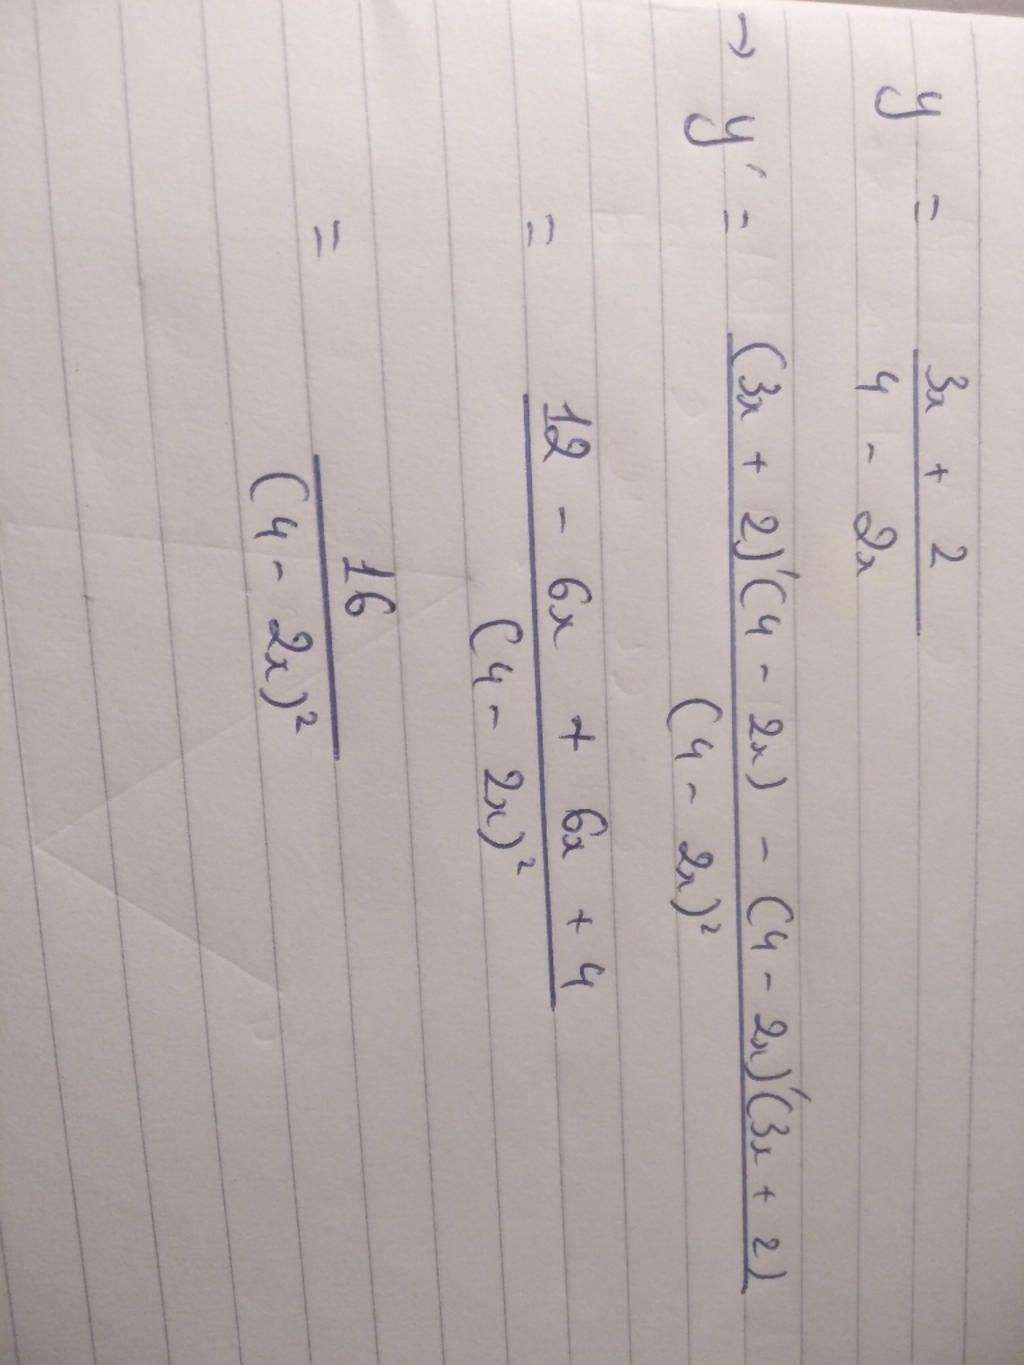 y = (3x + 2)/(4 - 2x)
→ y' = ((3x + 2)'(4 - 2x) - (4 - 2x)'(3x + 2))/(4 - 2x)²
= (12 - 6x + 6x + 4)/(4 - 2x)²
= 16/(4 - 2x)²